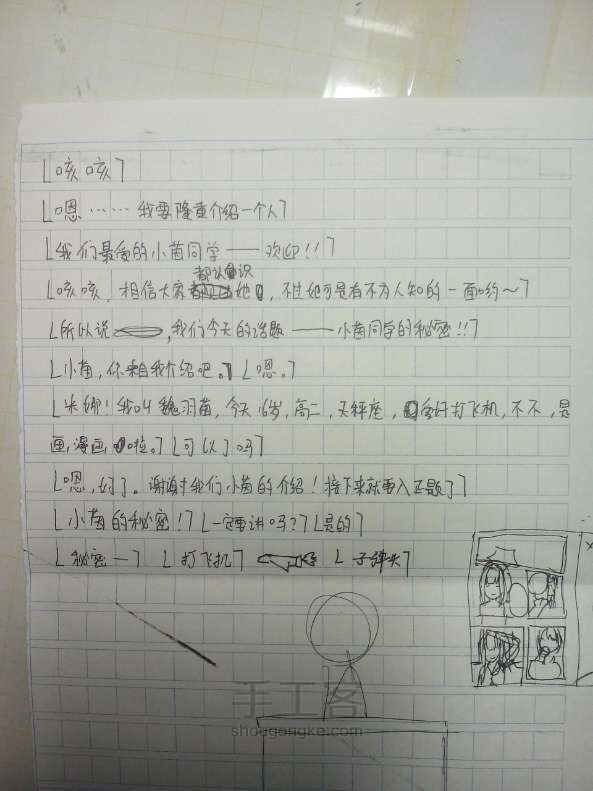 「咳咳」
「嗯……我要隆重介绍一个人」
「我们最爱的小茵同学——欢迎!!」
都认识
「咳咳,相信大家她,不过她可是有不为人知的一面哟~」
「所以说,我们今天的话题——小茵同学的秘密!!」
「小茵,你来自我介绍吧。」「嗯。」
「米娜!我叫魏羽茵,今天16岁,高二,天秤座,爱好打飞机,不不,是
画漫画啦。」「可以了吗?」
「嗯,好了。谢谢我们小茵的介绍!接下来就要入正题了」
「小茵的秘密!」「一定要讲吗?」「是的」
「秘密一」「打飞机」「子弹头」
手工客
shougongke.com